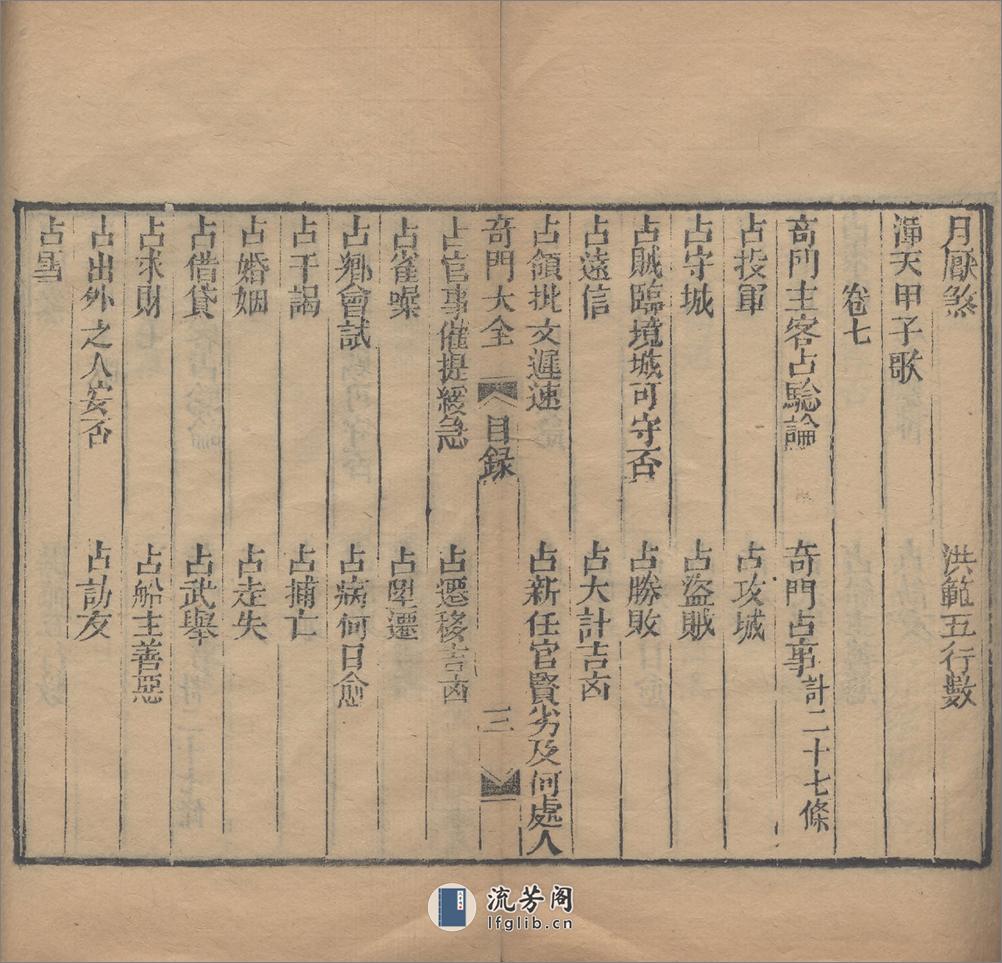 月厭煞　洪範五行數
渾天甲子歌
卷七
奇門主客占驗論　奇門占事計二十七條
占投軍　占攻城
占守城　占盜賊
占賊臨境城可守否　占勝敗
占遠信　占大計吉凶
占領批文遲速　占新任官賢劣及何處人
奇門大全　目録　三
占官事催提緩急　占遷移吉凶
占雀噪　占陞遷
占鄉會試　占病何日愈
占干謁　占捕亡
占婚姻　占走失
占借貸　占武舉
占求財　占船主善惡
占出外之人安否　占訪友
占雪
流芳阁
lfglib.cn